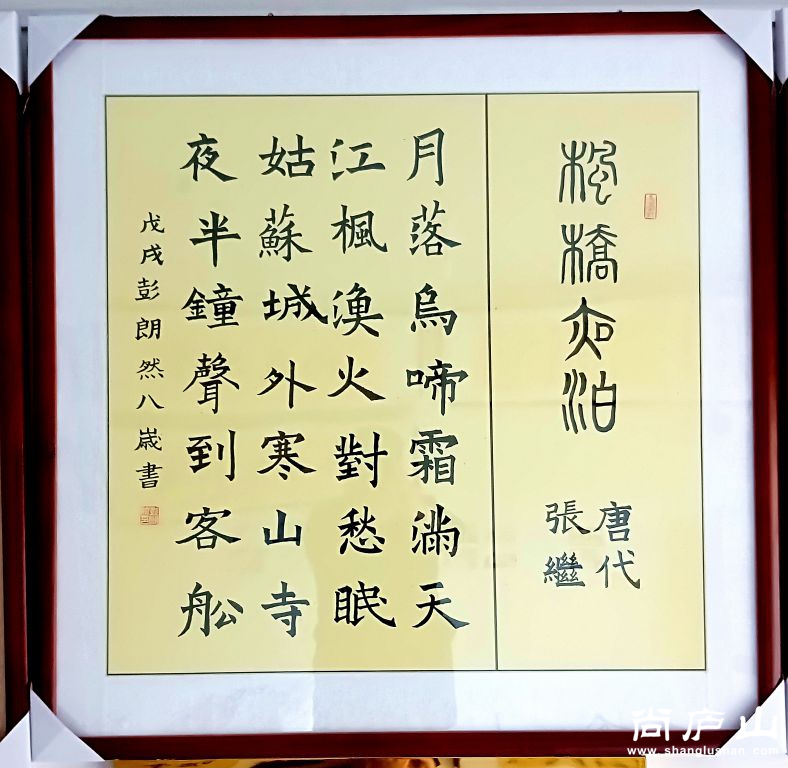 松橋夜泊
唐代
張繼
月落烏啼霜滿天
江楓渙火對愁眠
姑蘇城外寒山寺
夜半鐘聲到客舩
戊戌彭朗然八嵗書
尚庐山
www.shanglushan.com